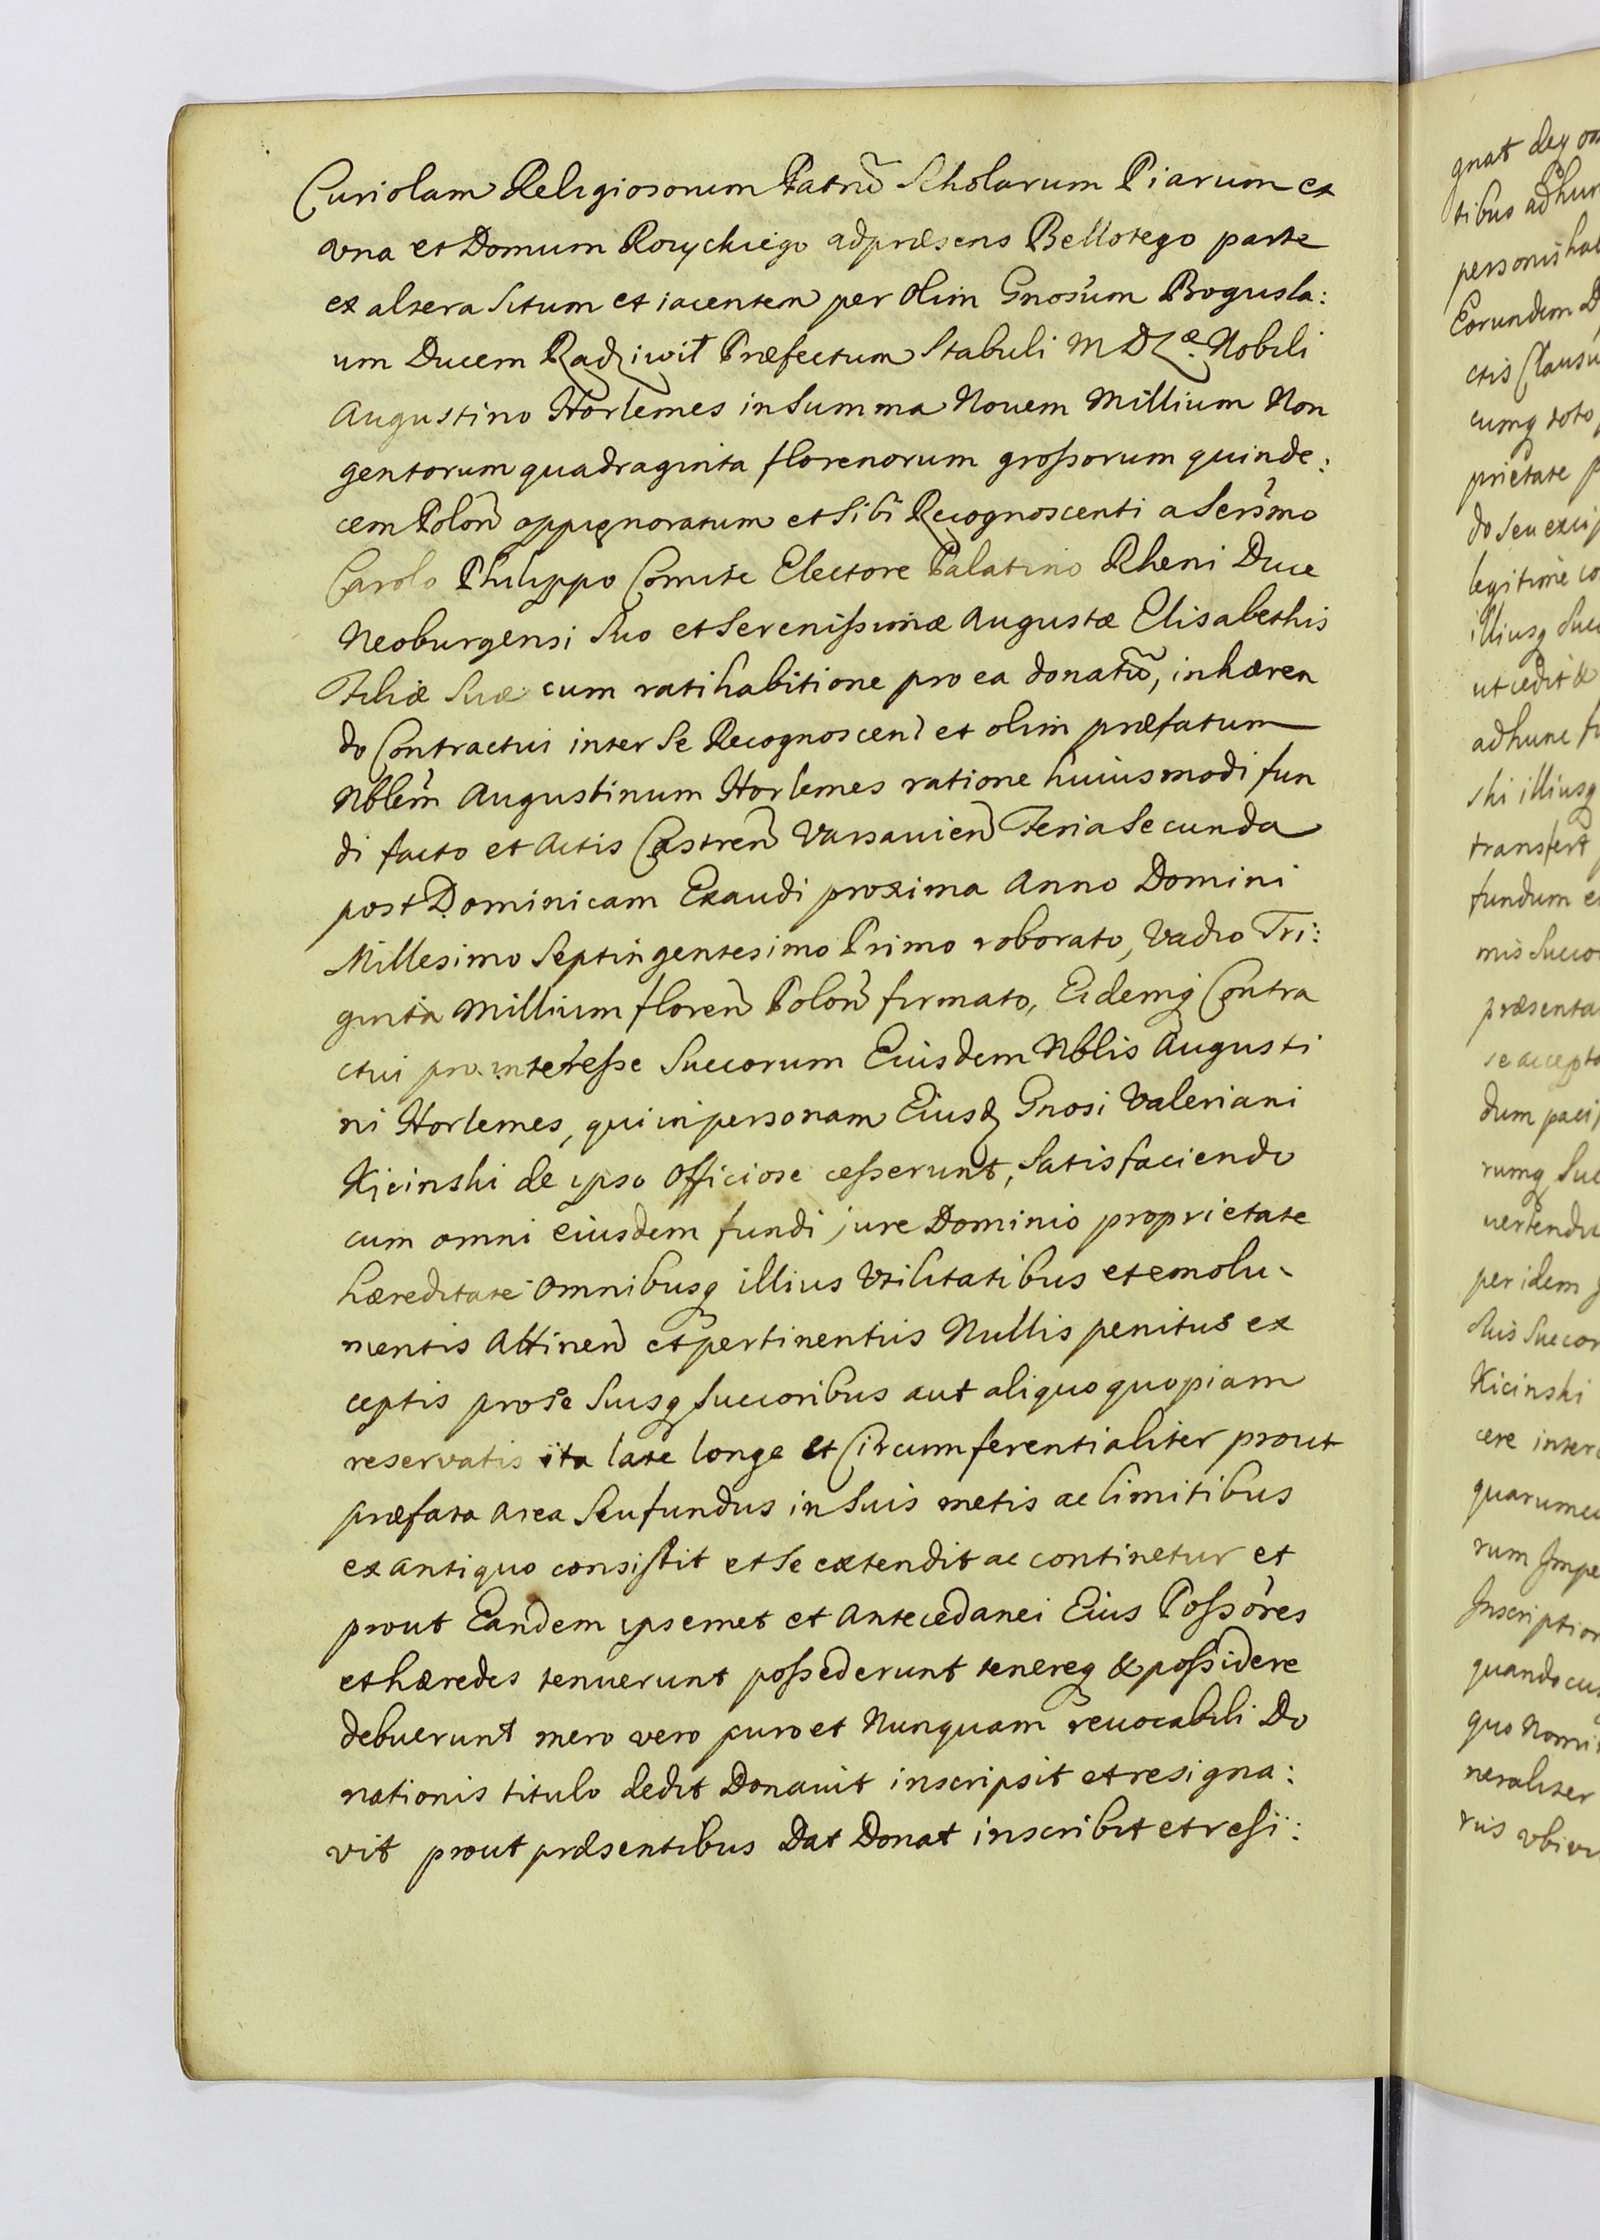 Curiolam Religiosorum Patrũ Scholarum Piarum ex
vna et Domum Rouyckiego ad præsens Bellotego parte
ex altera Situm et iacentem per olim Gnosum Bogusla:
um Ducem Radziwił Præfectum Stabuli M D L æ. Nobili
Augustino Horlemes in Summa Nouem Millium Non
gentorum quadraginta florenorum grossorum quinde:
cem Polon oppignoratum et Sibi Recognoscenti a Sersmo
Carolo Philippo Comite Electore Palatino Rheni Duce
Neoburgensi Suo et Serenissimæ Augustæ Elisabethis
Filiæ Suæ cum ratihabitione pro ea donatũ, inhæren
do Contractui inter Se Recognoscen et olim præfatum
Nblem Augustinum Horlemes ratione huiusmodi fun
di facto et Actis Castren Varsauien Feria Secunda
post Dominicam Exaudi proxima Anno Domini
Millesimo Septingentesimo Primo roborato, Vadio Tri:
ginta Millium floren Polon firmato, Eidemq Contra
ctui pro interesse Succorum Eiusdem Nblis Augusti
ni Horlemes, qui in personam Eiusd Gnosi Valeriani
Kicinski de ipso Officiose cesserunt, Satisfaciendo
cum omni eiusdem fundi jure Dominio proprietate
hæreditate omnibusq illius Vtilitatibus et emolu-
mentis Attinen et pertinentiis Nullis penitus ex
ceptis pro se Suisq Succoribus aut aliquo quopiam
reservatis ita late longe et Circumferentialiter prout
præfata area Seu fundus in Suis metis ac limitibus
ex antiquo consistit et Se extendit ac continetur et
prout Eandem ipsemet et Antecedanei Eius Possores
et hæredes tenuerunt possederunt tenereq & possidere
debuerunt mero vero puro et Nunquam reuocabili Do
nationis titulo dedit Donauit inscripsit et resigna:
vit prout præsentibus Dat Donat inscribit et resi:
gnat
tibus
personis
Eorundem
ctis
cumq toto
prietate
do Seu
legitime
illiusq
ut cedit &
ad hunc
ski illiusq
transfert
fundum
mis
præsenta
se accepto
dum
rumq
per idem
Suis Succor
Kicinski
cere
rum
Inscription
quo